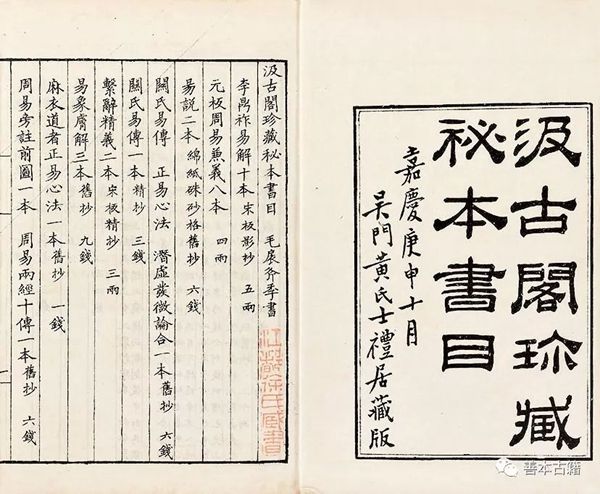 汲古閣珍藏
祕本書目
嘉慶庚申十月
吳門黃氏士禮居藏版
汲古閣珍藏秘本書目　毛扆斧季書
李鼎祚易解十本　宋板影抄　五兩
元板周易兼義八本　四兩
易説二本　綿紙硃砂格舊抄　六錢
關氏易傳　正易心法　潛虛發微論合一本舊抄　六錢
關氏易傳一本精抄　三錢
繫辭精義二本　宋板精抄　三兩
易象膚解三本舊抄　九錢
麻衣道者正易心法一本舊抄　一錢
周易旁註前圖一本　周易兩經十傳一本舊抄　六錢
江都徐氏藏書
善本古籍